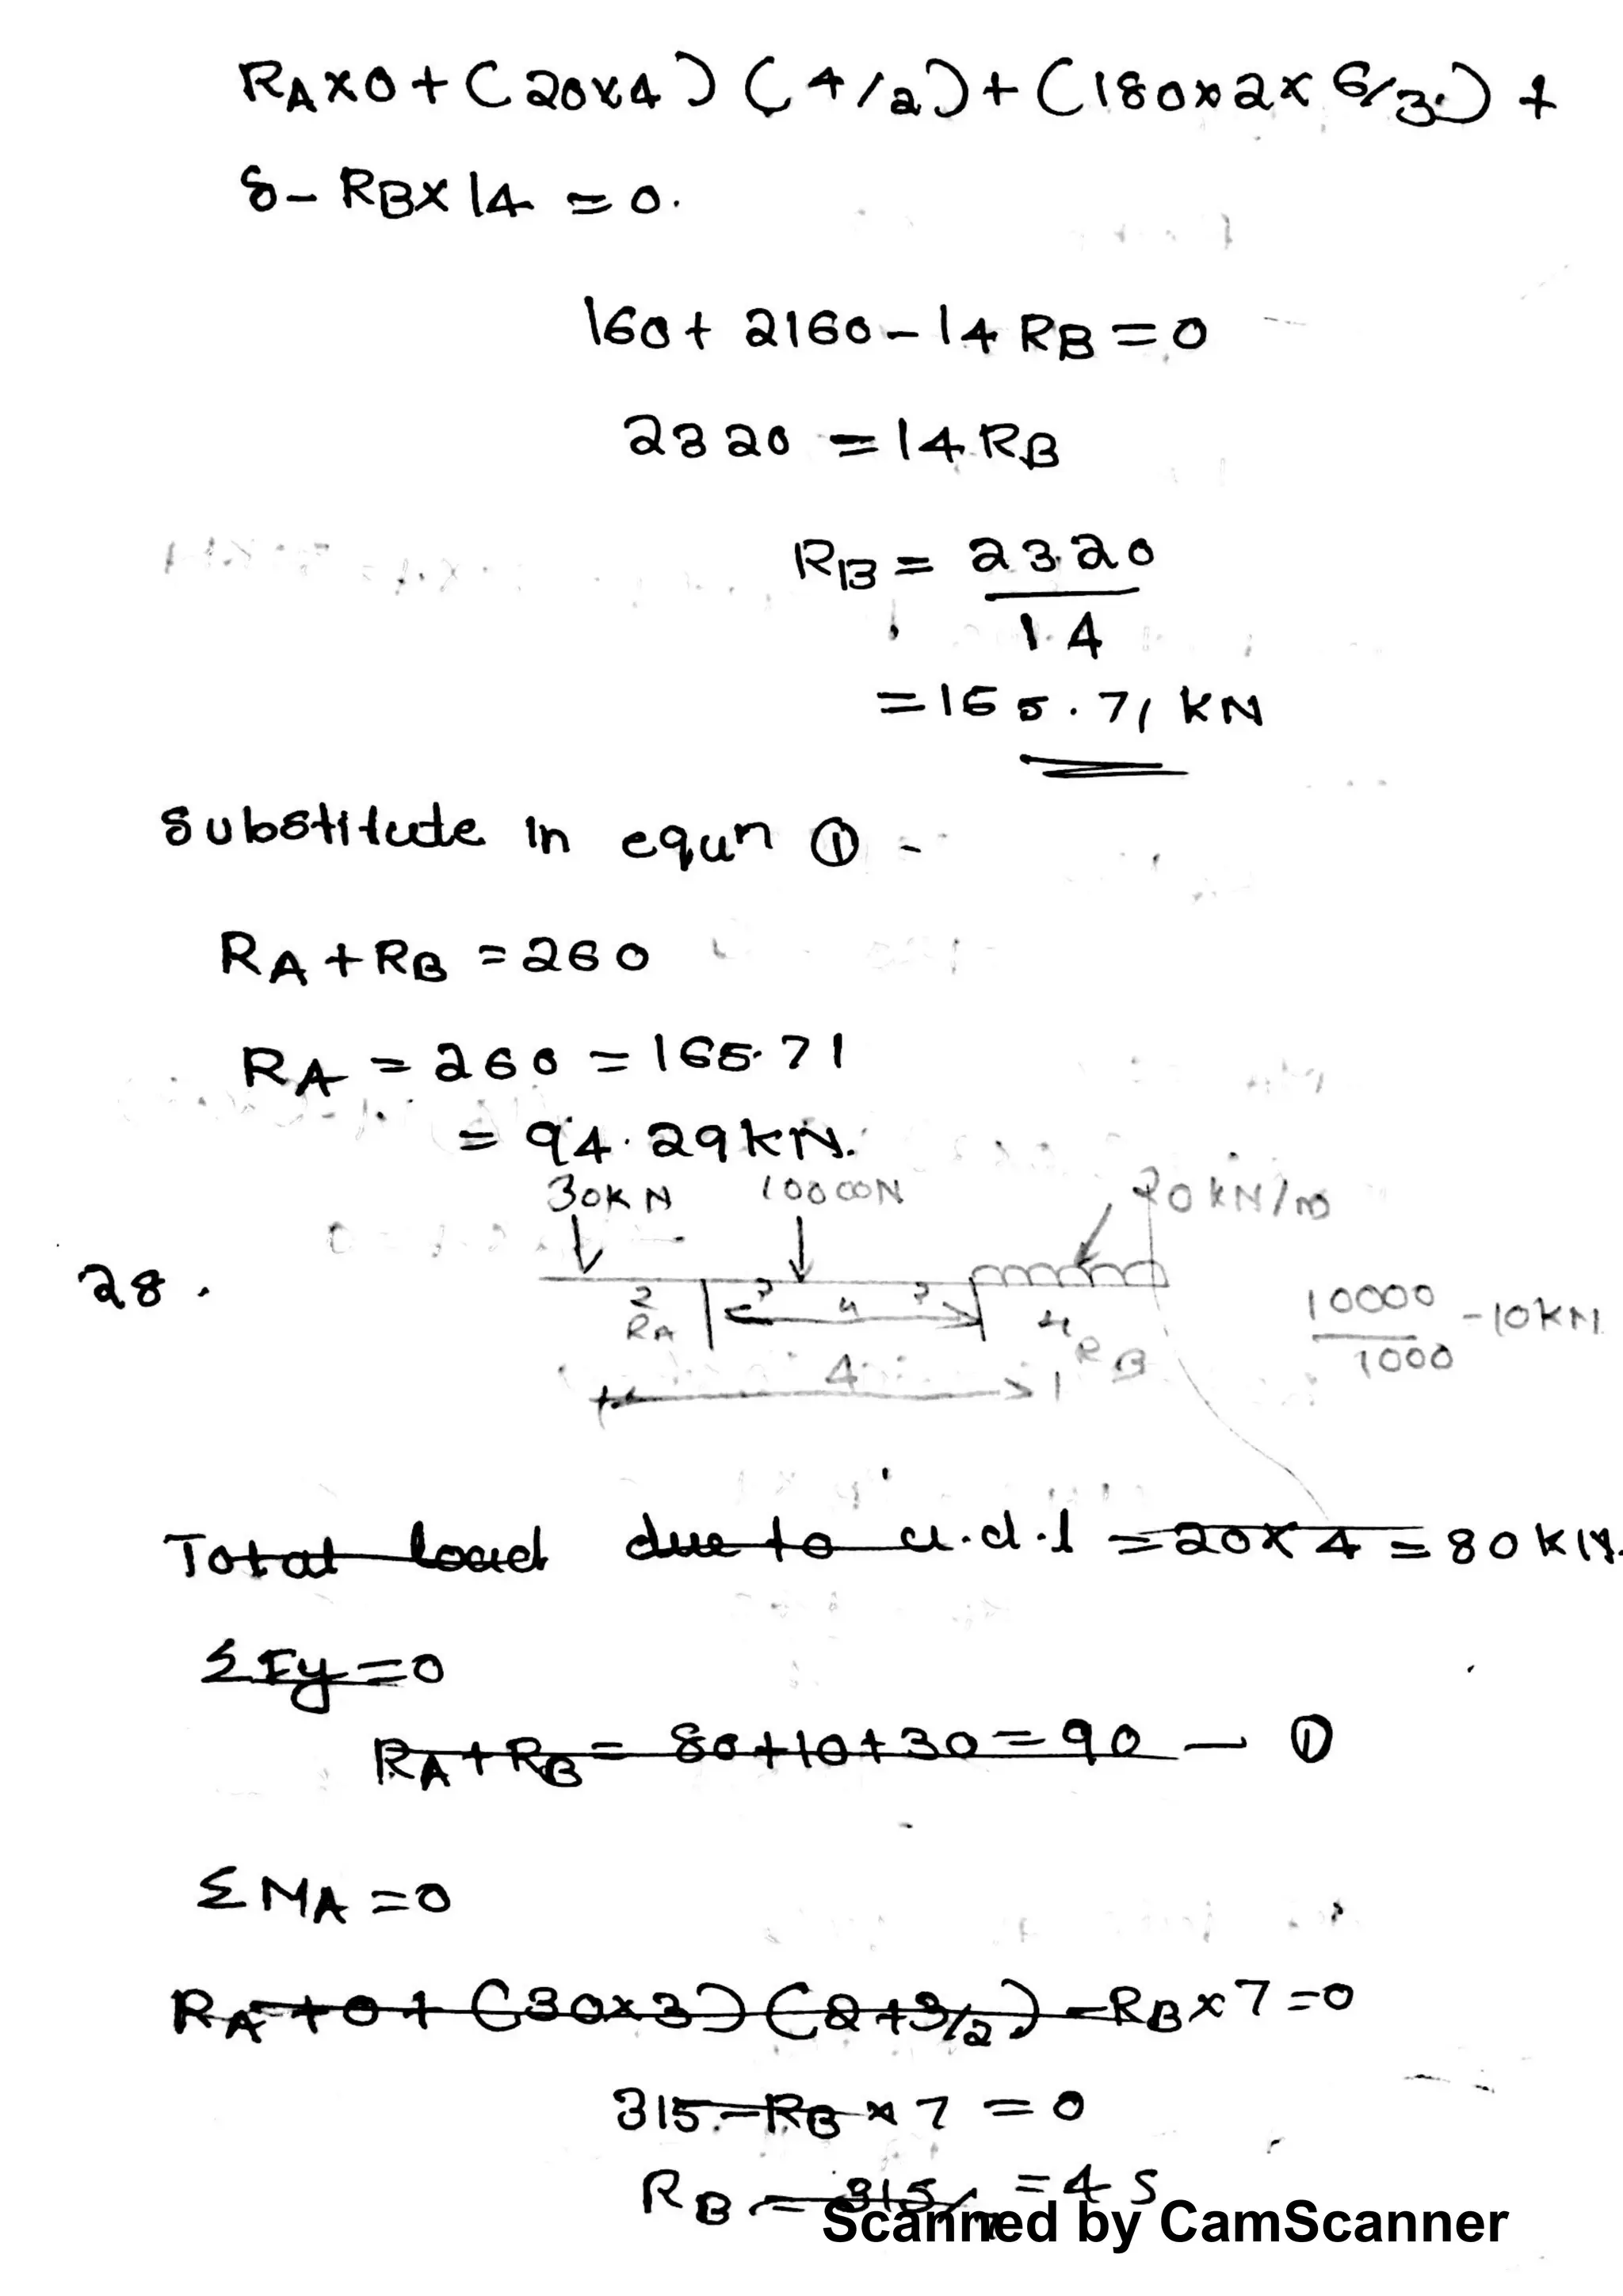 RA×0+(20×4)(4/2)+(180×2×6/3)+
8-RB×14=0.
160+2160-14RB=0
2320=14RB
RB=2320
14
=165.71 KN
Substitute in equn ①
RA+RB=260
RA=260=165.71
=94.29KN.
30KN 10000N 20kN/m
28.
2 4 4
RA RB
4
10000
1000 -10KN
Total load due to u.d.l =20×4=80KN.
ΣFy=0
RA+RB=80+10+30=90 - ①
ΣMA=0
RA+0+(30×3)(2+3/2)-RB×7=0
315-RB×7=0
RB=315/7=45
Scanned by CamScanner